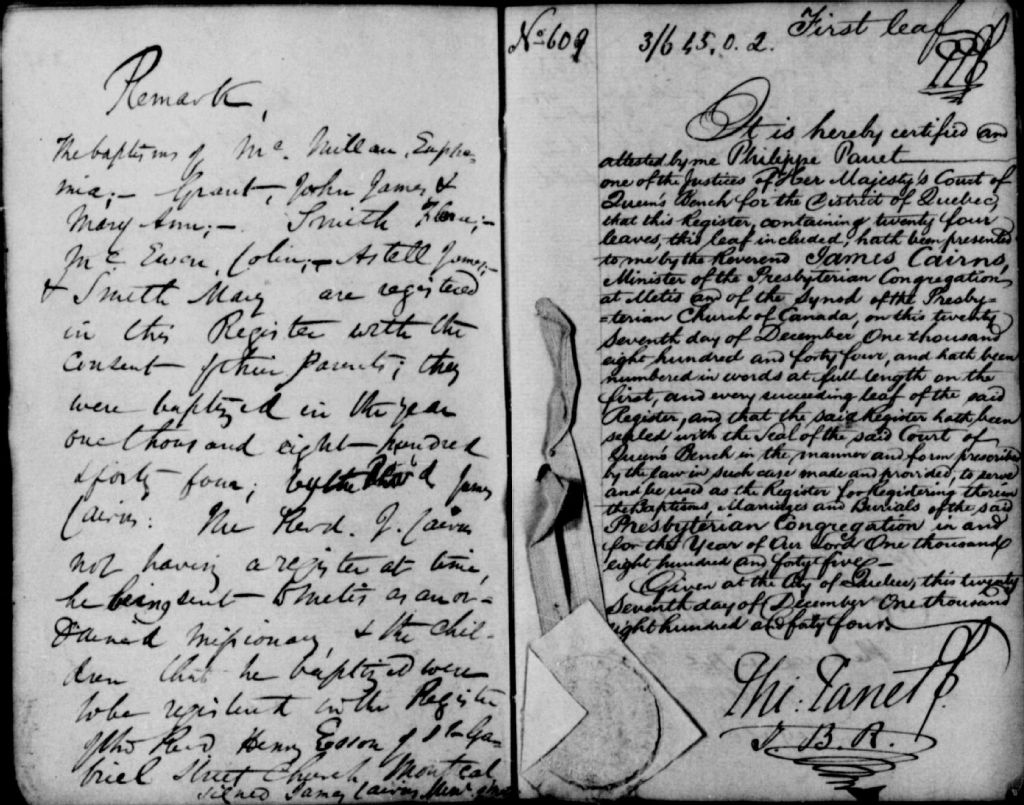 Remark,
The baptisms of Mc. Millan, Euphe-
mia;- Grant, John James &
Mary Ann;- Smith
Mc Ewen, Colin;- Astell James,-
& Smith Mary are registered
in this Register with the
consent of their parents; they
were baptized in the year
one thousand eight hundred
& forty four; by the Rev'd James
Cairns: The Revd. J. Cairns
not having a register at time,
he being sent to Metis as an or-
dained missionary, & the chil-
dren that he baptized were
to be registered in the Register
of the Revd Henry Esson of St Ga-
briel Street Church, Montreal
signed James Cairns Minr.
No 609
3/6 45. 0. 2.
First leaf
PP
It is hereby certified and
attested by me Philippe Panet
one of the Justices of Her Majesty's Court of
Queen's Bench for the District of Quebec,
that this Register, containing twenty four
leaves, this leaf included, hath been presented
to me by the Reverend James Cairns,
Minister of the Presbyterian Congregation,
at Metis and of the Synod of the Presby-
-terian Church of Canada, on this twenty
seventh day of December One thousand
eight hundred and forty four, and hath been
numbered in words at full length on the
first, and every succeeding leaf of the said
Register, and that the said Register hath been
sealed with the Seal of the said Court of
Queen's Bench in the manner and form prescribed
by the law in such case made and provided, to serve
and be used as the Register for Registering therein
the Baptisms, Marriages and Burials of the said
Presbyterian Congregation in and
for the Year of Our Lord One thousand
eight hundred and forty five-
Given at the City of Quebec, this twenty
seventh day of December One thousand
eight hundred and forty four.
Phi: Panet
J. B. R.